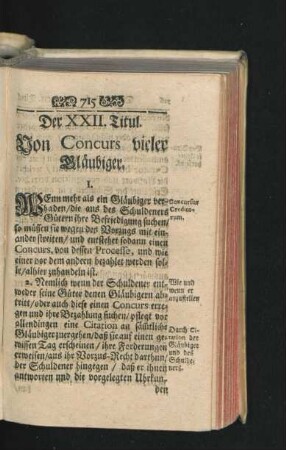 715
Der XXII. Titul.
Von Concurs vieler
Gläubiger.
1.
WEnn mehr als ein Gläubiger ver-
handen/die aus des Schuldeners
Gütern ihre Befriedigung suchen/
so müssen sie wegen des Vorzugs mit ein-
ander streiten/ und entstehet sodann einen
Concurs, von dessen Processe, und wie
einer vor dem andern bezahlet werden sol-
le/alhier zuhandeln ist.
2. Nemlich wenn der Schuldener ent-
weder seine Güter denen Gläubigern ab-
tritt/oder auch diese einen Concurs erre-
gen und ihre Bezahlung suchen/ pflegt vor
allendingen eine Citation an sämtliche
Gläubiger zuergehen/daß sie auf einen ge-
wissen Tag erscheinen/ ihre Forderungen
erweisen/aus ihr Vorzus-Recht darthun/
der Schuldener hingegen / daß er ihnen
antworten und die vorgelegten Uhrkun-
den
Concursus
Wie und
wenn er
anzustellen
Durch Ci-
tation der
Gläubiger
und des